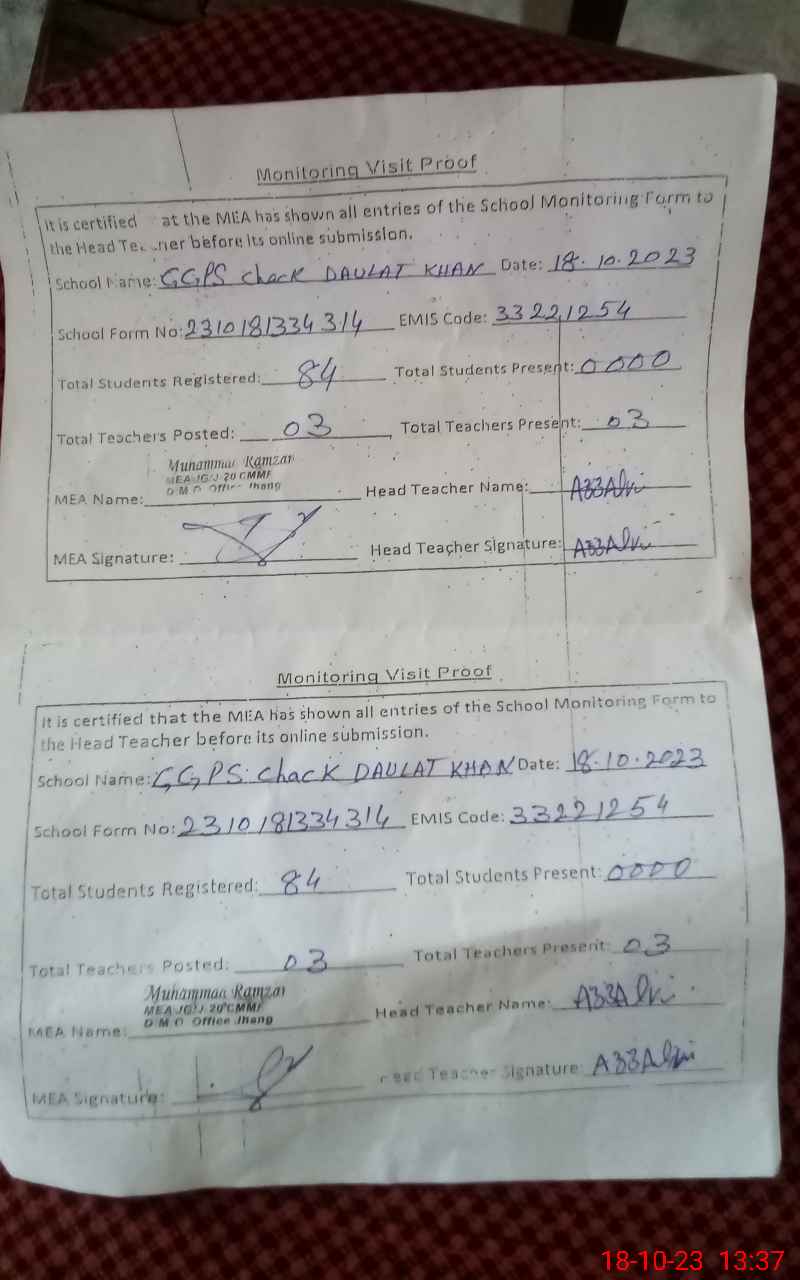 Monitoring Visit Proof
It is certified at the MEA has shown all entries of the School Monitoring Form to
the Head Teacher before its online submission.
School Name: GGPS Chack DAULAT KHAN Date: 18.10.2023
School Form No: 2310181334314 EMIS Code: 33221254
Total Students Registered: 84 Total Students Present: 0000
Total Teachers Posted: 03 Total Teachers Present: 03
Muhammad Ramzan
20 CMMF
D M O Office Jhang
MEA Name: Head Teacher Name:
MEA Signature: Head Teacher Signature:
Monitoring Visit Proof
It is certified that the MEA has shown all entries of the School Monitoring Form to
the Head Teacher before its online submission.
School Name: GGPS Chack DAULAT KHAN Date: 18.10.2023
School Form No: 2310181334314 EMIS Code: 33221254
Total Students Registered: 84 Total Students Present: 0000
Total Teachers Posted: 03 Total Teachers Present: 03
Muhammad Ramzan
20 CMMF
D M O Office Jhang
MEA Name: Head Teacher Name:
MEA Signature: Head Teacher Signature:
18-10-23 13:37